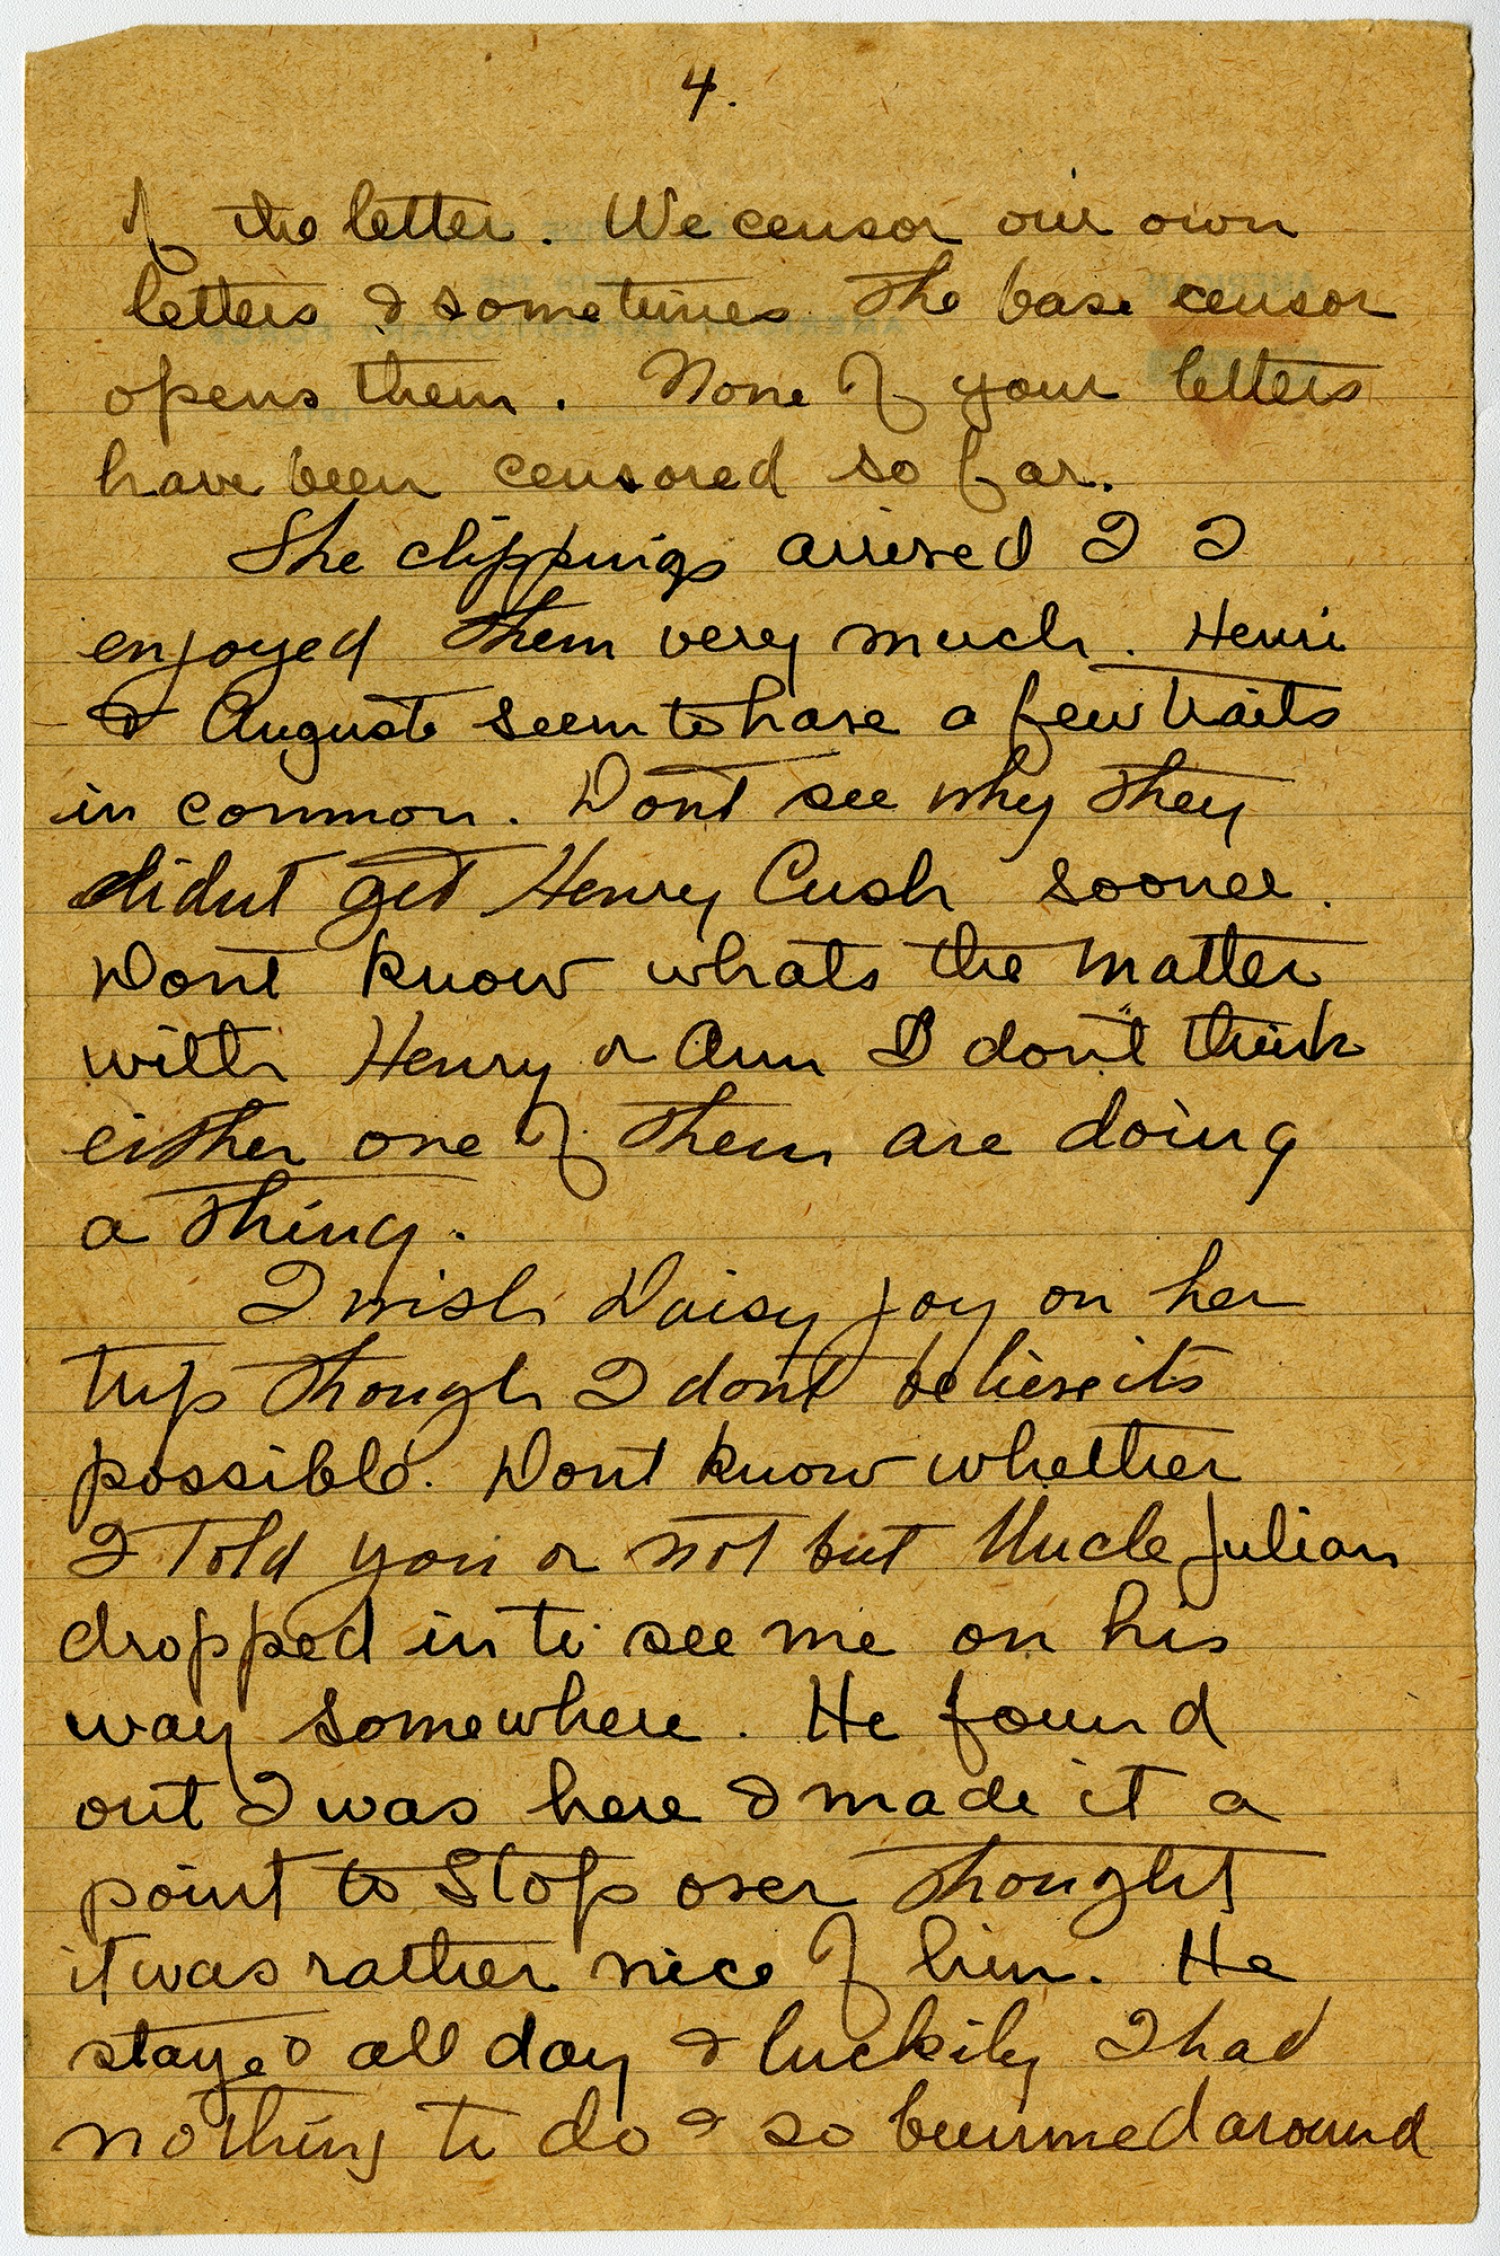 4.
of the letter. We censor our own
letters & sometimes the base censor
opens them. None of your letters
have been censored so far.
The clippings arrived & I
enjoyed them very much. Henri
& Auguste seem to have a few traits
in common. Dont see why they
didnt get Henry Cush sooner.
Dont know whats the matter
with Henry or Ann I dont think
either one of them are doing
a thing.
I wish Daisy joy on her
trip though I dont believe its
possible. Dont know whether
I told you or not but Uncle Julian
dropped in to see me on his
way somewhere. He found
out I was here & made it a
point to stop over thought
it was rather nice of him. He
stayed all day & luckily I had
nothing to do & so bummed around